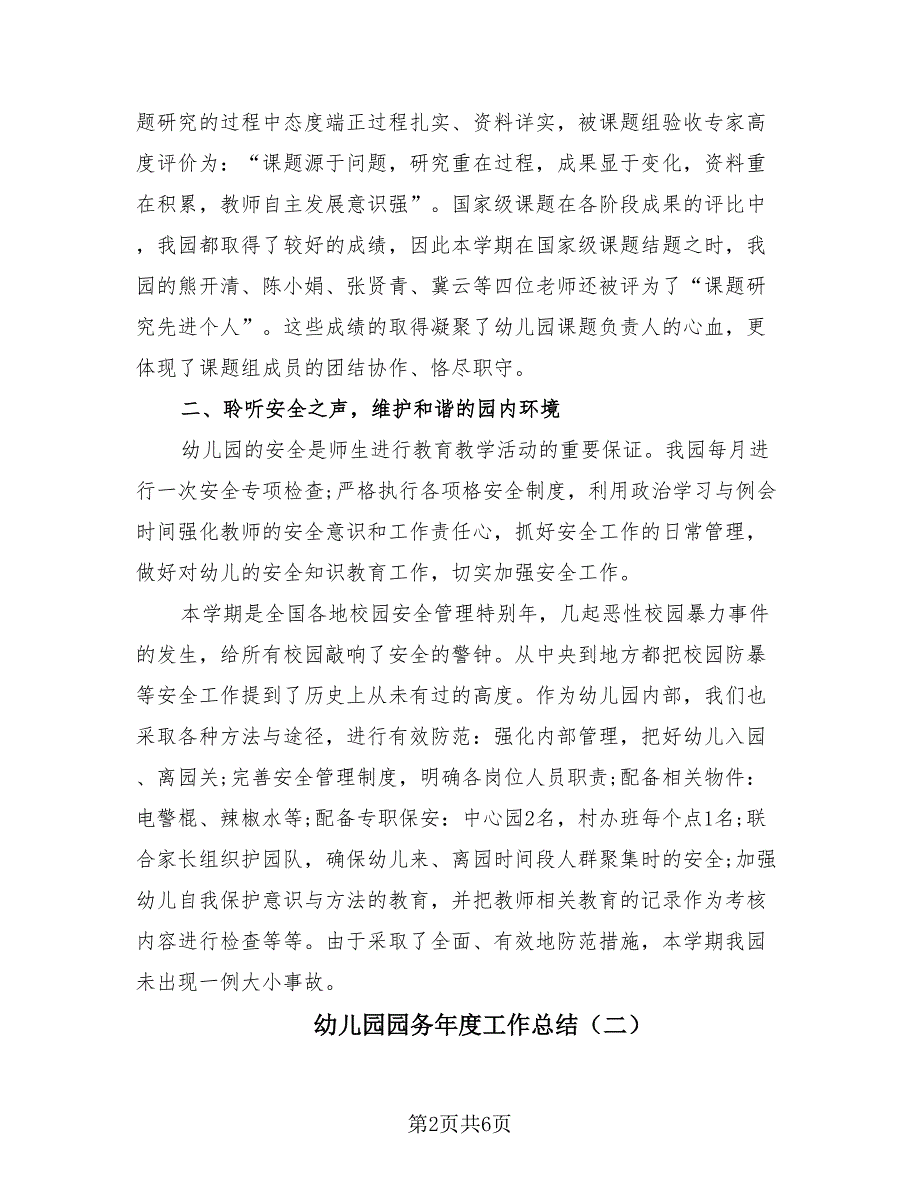 题研究的过程中态度端正过程扎实、资料详实，被课题组验收专家高
度评价为：“课题源于问题，研究重在过程，成果显于变化，资料重
在积累，教师自主发展意识强”。国家级课题在各阶段成果的评比中
，我园都取得了较好的成绩，因此本学期在国家级课题结题之时，我
园的熊开清、陈小娟、张贤青、冀云等四位老师还被评为了“课题研
究先进个人”。这些成绩的取得凝聚了幼儿园课题负责人的心血，更
体现了课题组成员的团结协作、恪尽职守。
二、聆听安全之声，维护和谐的园内环境
幼儿园的安全是师生进行教育教学活动的重要保证。我园每月进
行一次安全专项检查;严格执行各项格安全制度，利用政治学习与例会
时间强化教师的安全意识和工作责任心，抓好安全工作的日常管理，
做好对幼儿的安全知识教育工作，切实加强安全工作。
本学期是全国各地校园安全管理特别年，几起恶性校园暴力事件
的发生，给所有校园敲响了安全的警钟。从中央到地方都把校园防暴
等安全工作提到了历史上从未有过的高度。作为幼儿园内部，我们也
采取各种方法与途径，进行有效防范：强化内部管理，把好幼儿入园
、离园关;完善安全管理制度，明确各岗位人员职责;配备相关物件：
电警棍、辣椒水等;配备专职保安：中心园2名，村办班每个点1名;联
合家长组织护园队，确保幼儿来、离园时间段人群聚集时的安全;加强
幼儿自我保护意识与方法的教育，并把教师相关教育的记录作为考核
内容进行检查等等。由于采取了全面、有效地防范措施，本学期我园
未出现一例大小事故。
幼儿园园务年度工作总结（二）
第2页共6页